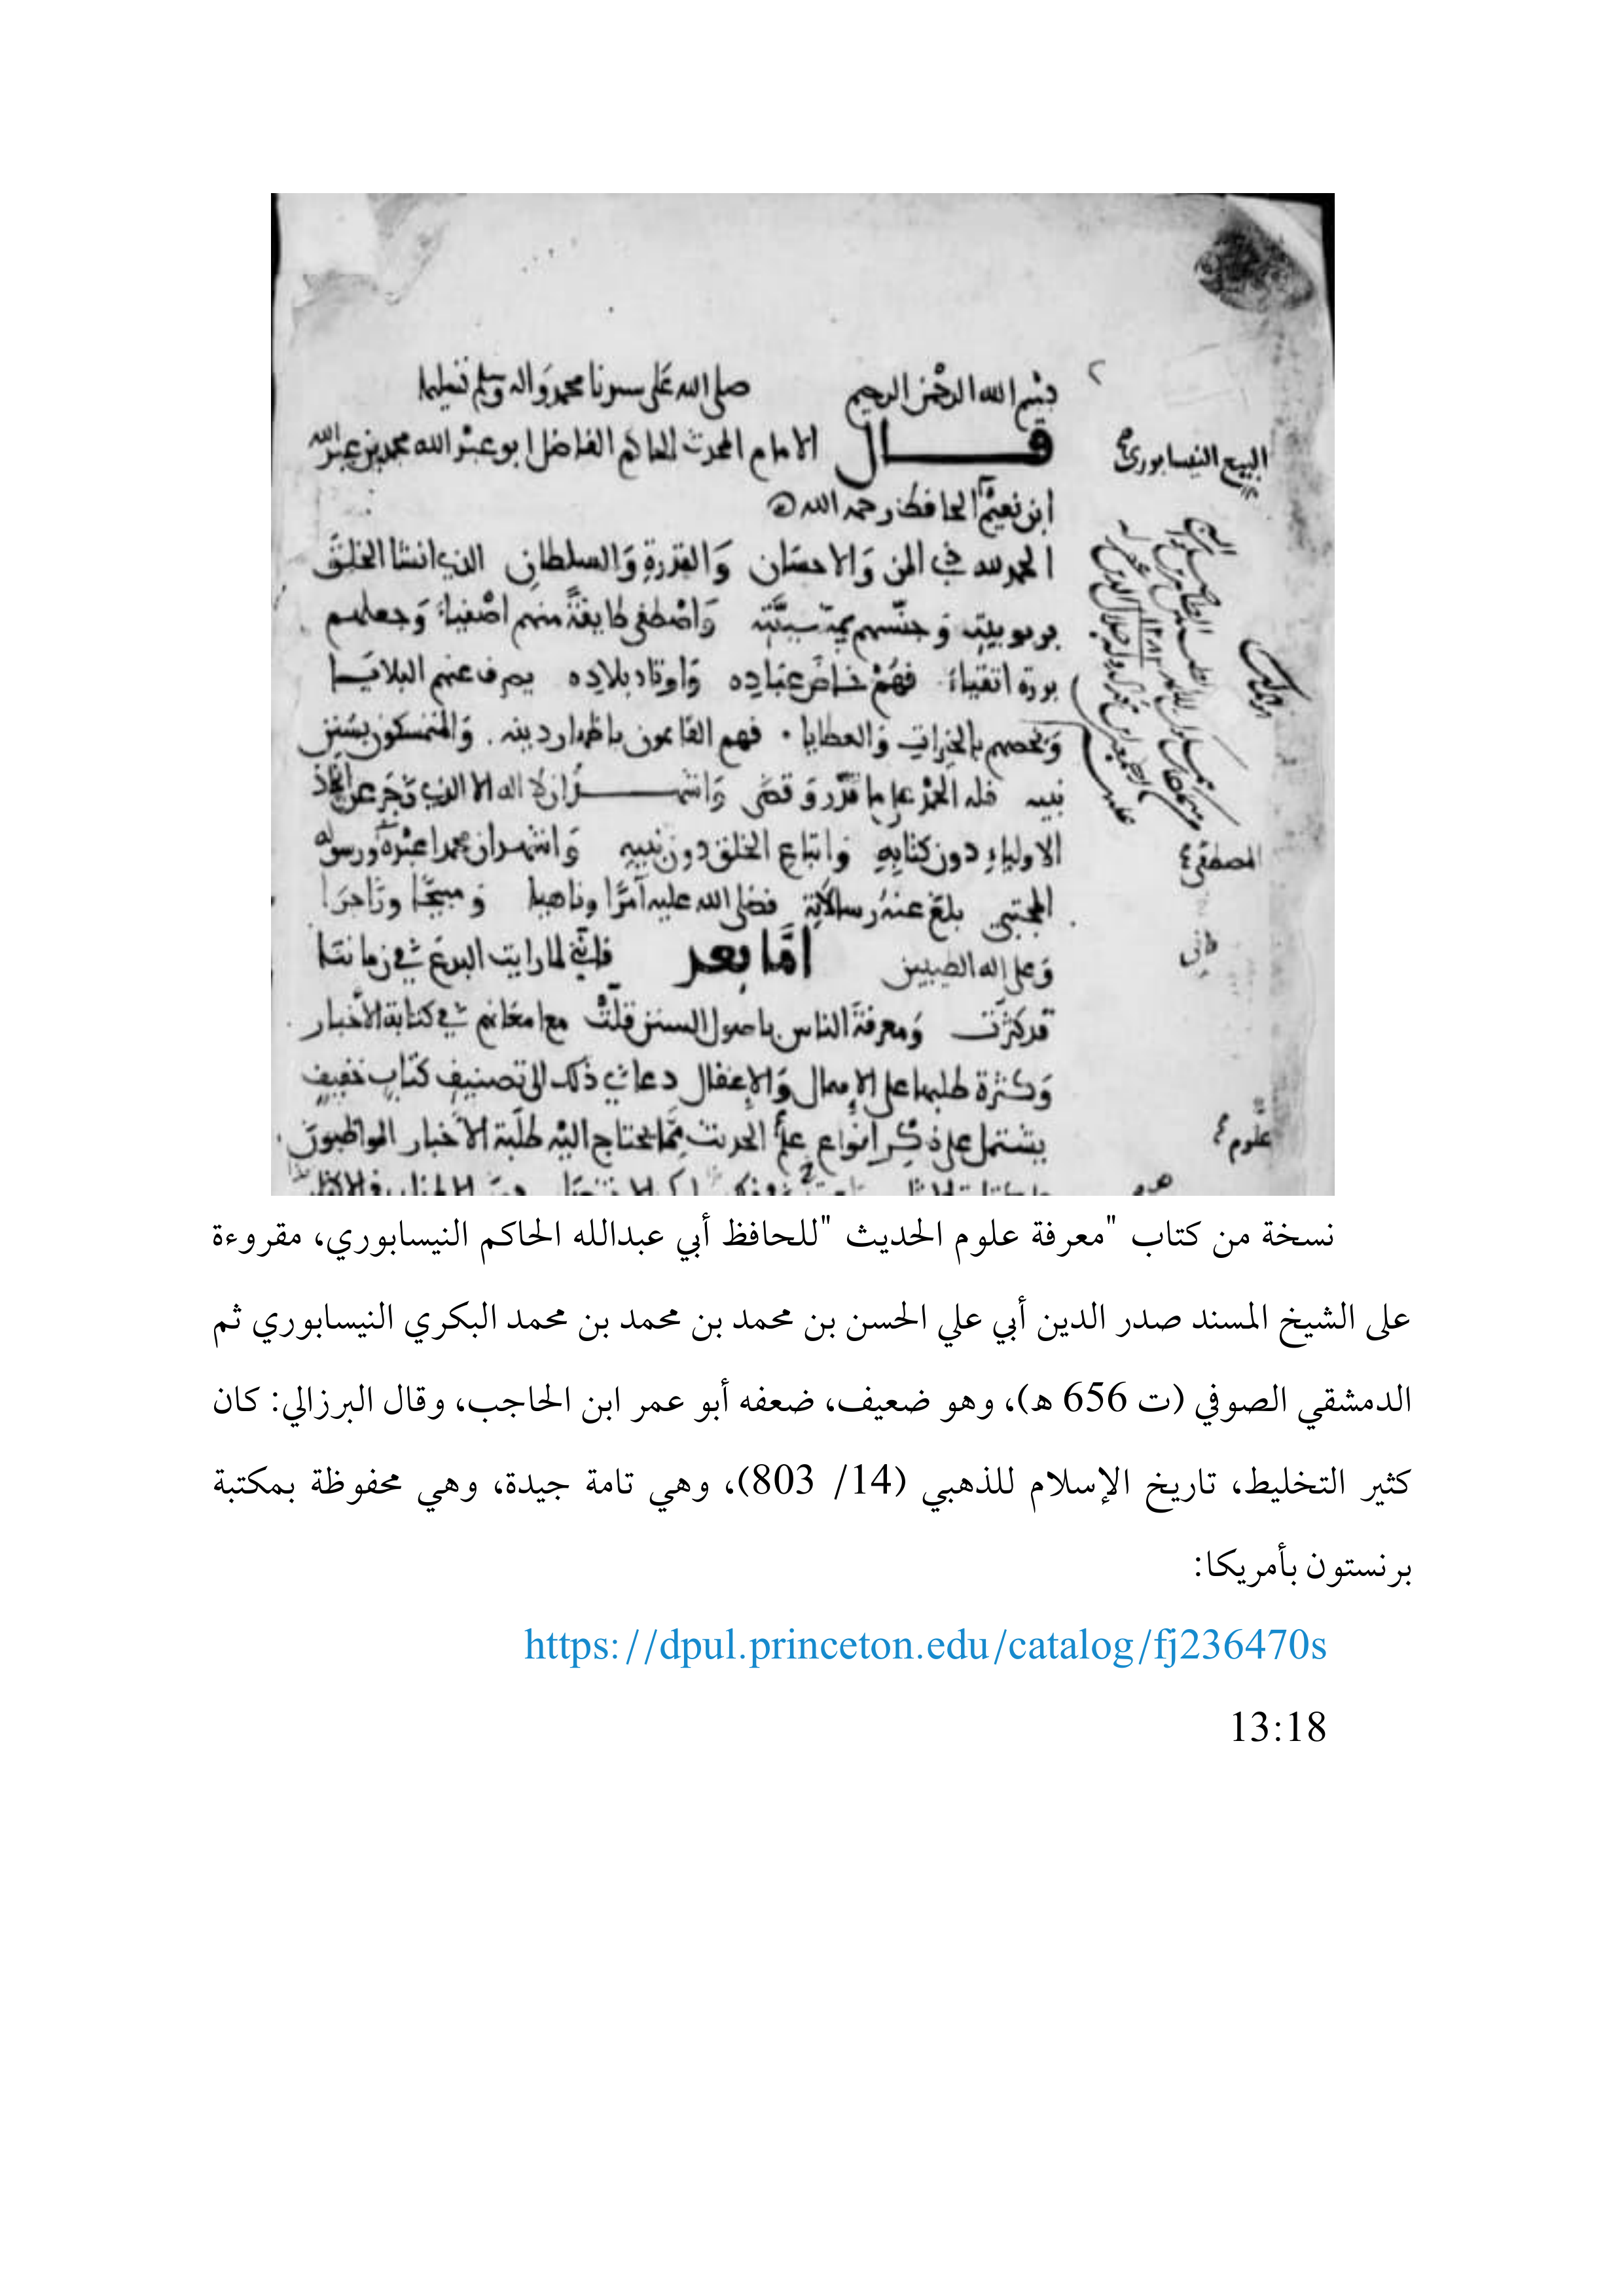 بسم الله الرحمن الرحيم صلى الله على سيدنا محمد واله وسلم تسليما
قال الامام المحدث الحاكم الفاضل ابو عبد الله محمد بن عبد الله
البيع النيسابوري
ابن نعيم الحافظ رحمه الله
الحمد لله ذي المن والاحسان والقدرة والسلطان الذي انشا الخلق
بربوبيته وجنسهم بمشيئته واصطفى طايفة منهم اصفياء وجعلهم
بررة اتقياء فهم خاص عباده واوتاد بلاده يصرف عنهم البلايا
ويخصهم بالخيرات والعطايا فهم القايمون باظهار دينه والمتمسكون بسنن
نبيه فله الحمد على ما قدر وقضى واشهد ان لا اله الا الذي زجر عن اتخاذ
الاولياء دون كتابه واتباع الخلق دون نبيه واشهد ان محمدا عبده ورسوله
المصطفى
المجتبى بلغ عنه رسالاته فصلى الله عليه آمرا وناهيا ومبيحا وزاجرا
وعلى اله الطيبين اما بعد فاني لما رايت البدع في زماننا
قد كثرت ومعرفة الناس باصول السنن قلت مع امعانهم في كتابة الاخبار
وكثرة طلبها على الاهمال والاغفال دعاني ذلك الى تصنيف كتاب خفيف
يشتمل على ذكر انواع علم الحديث مما يحتاج اليه طلبة الاخبار المواظبون
علوم
نسخة من كتاب "معرفة علوم الحديث "للحافظ أبي عبدالله الحاكم النيسابوري، مقروءة
على الشيخ المسند صدر الدين أبي علي الحسن بن محمد بن محمد بن محمد البكري النيسابوري ثم
الدمشقي الصوفي (ت 656 ه)، وهو ضعيف، ضعفه أبو عمر ابن الحاجب، وقال البرزالي: كان
كثير التخليط، تاريخ الإسلام للذهبي (14/ 803)، وهي تامة جيدة، وهي محفوظة بمكتبة
برنستون بأمريكا:
https://dpul.princeton.edu/catalog/fj236470s
13:18